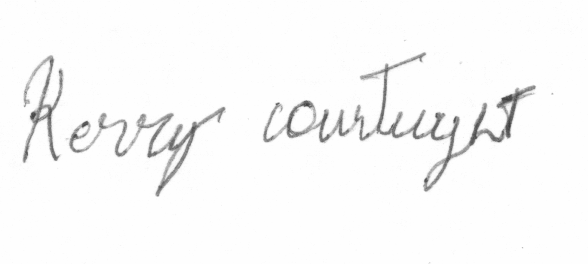 Kerry courtright